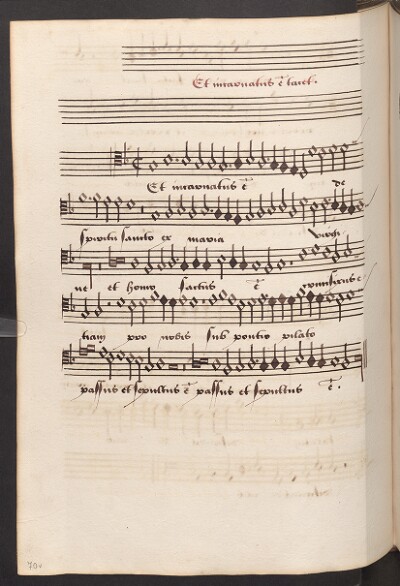 Et incarnatus ē tacet.
Et incarnatus ē de
spiritu sancto ex maria virgi
ne et homo factus ē crucifixus e
tiam pro nobis sub pontio pilato
passus et sepultus ē passus et sepultus ē.
70v